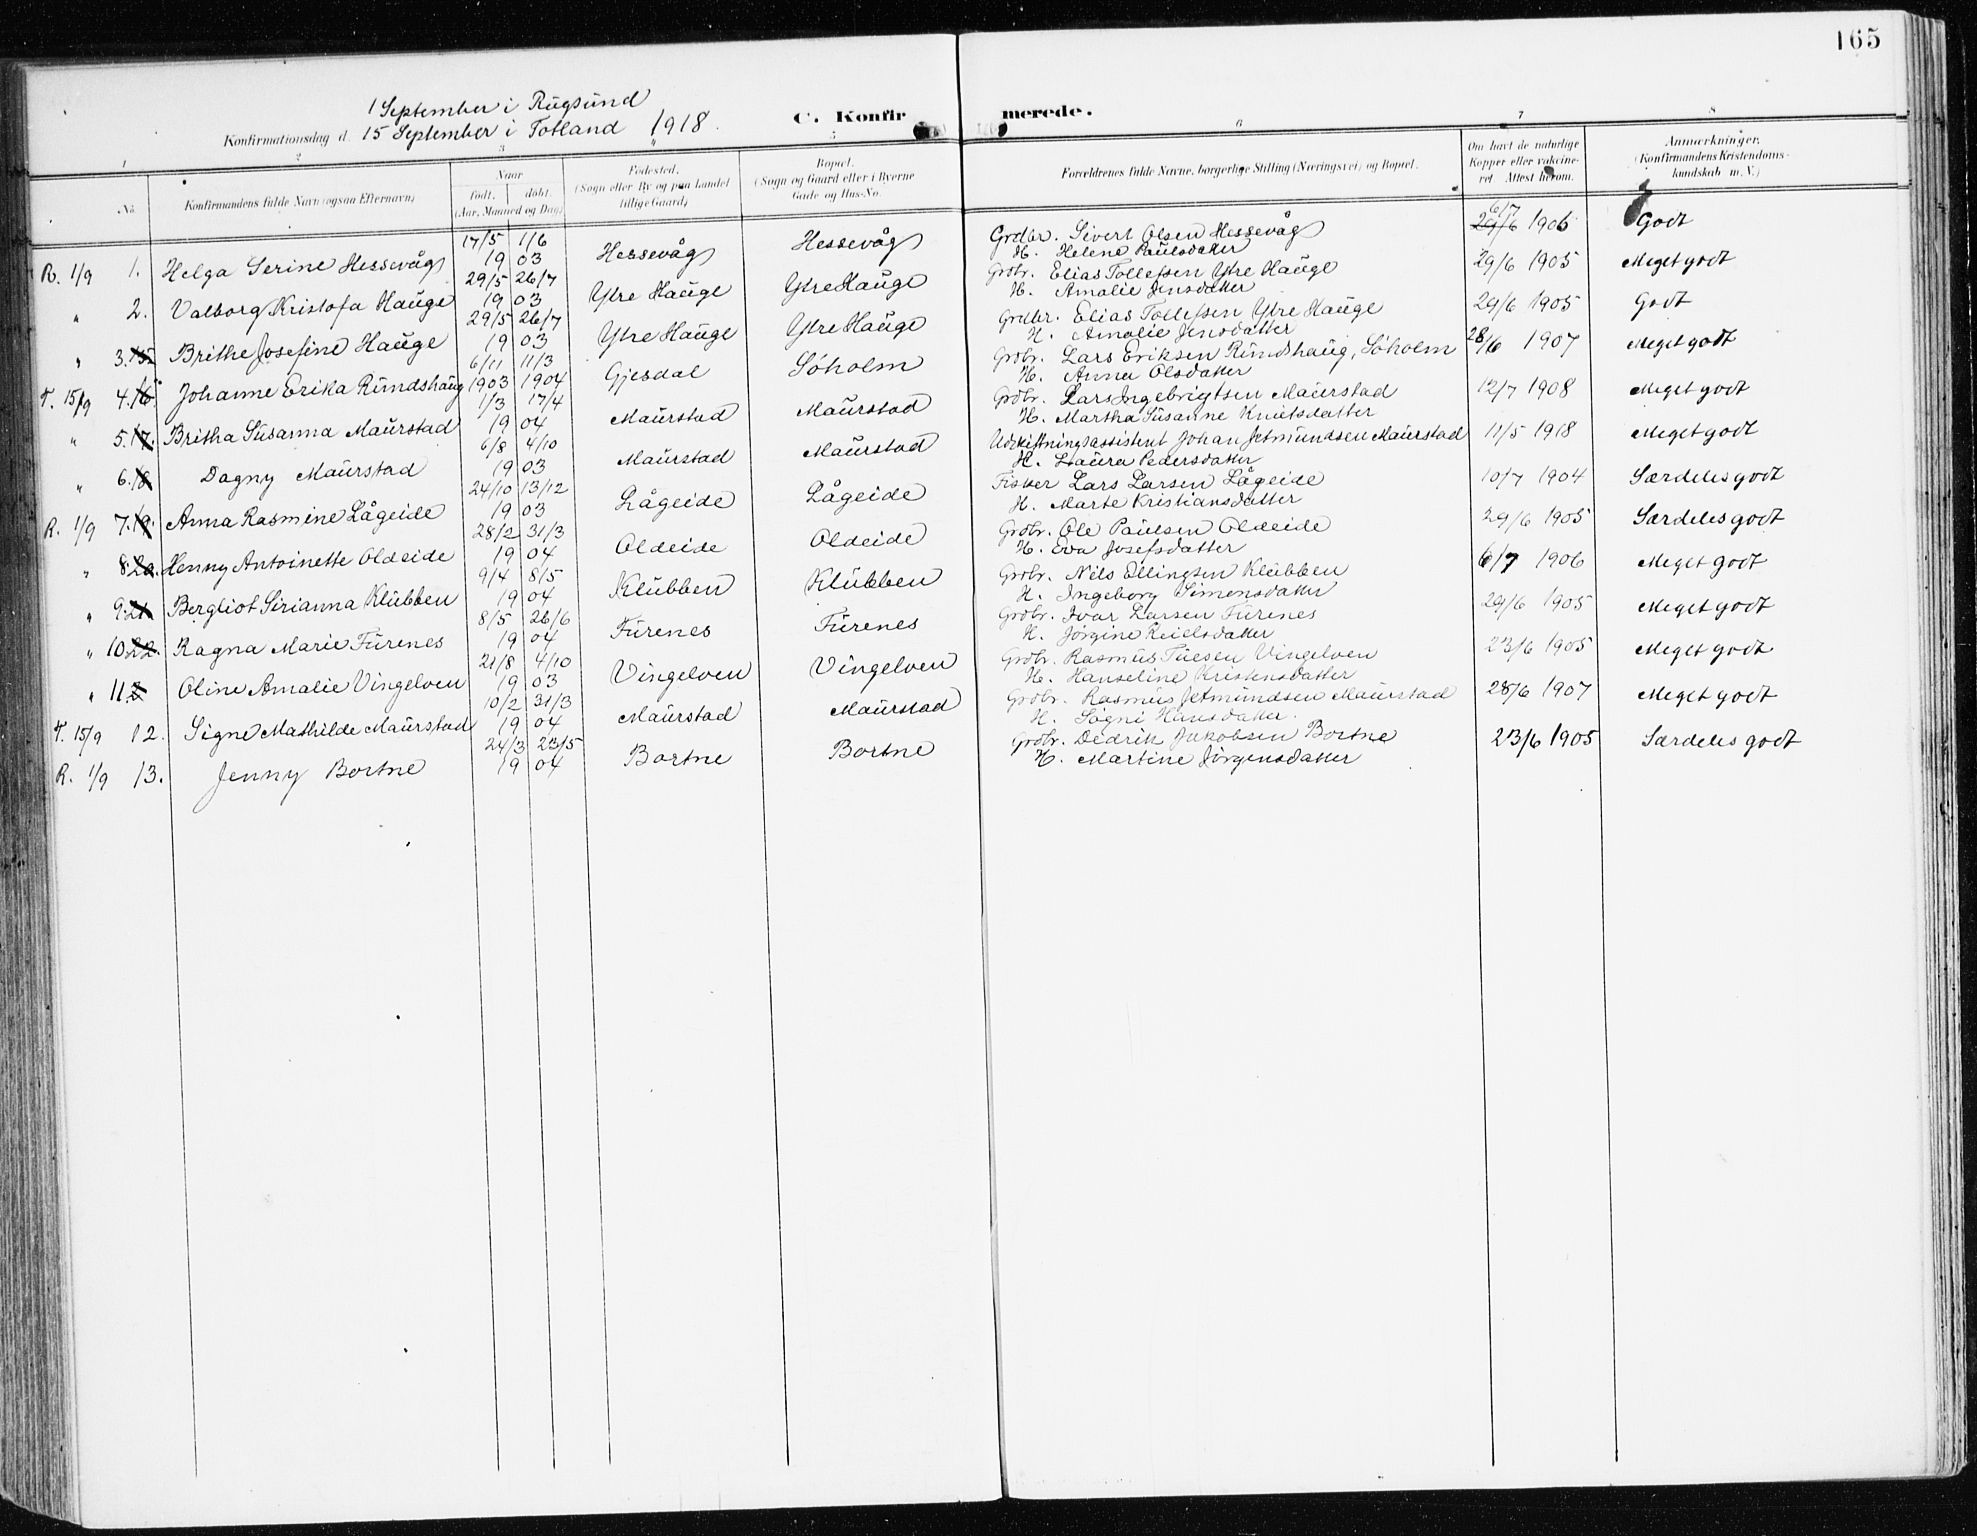 165
1 September i Rugsund
Konfirmationsdag d. 15 September i Totland 1918.
C. Konfirmerede.
1 2 3 5 6 7 8
No.
Konfirmandens fulde Navn (ogsaa Efternavn)
Naar
født, døbt.
(Aar, Maaned og Dag)
Fødested.
(Sogn eller By og paa Landet
tillige Gaard)
Bopæl.
(Sogn og Gaard eller i Byerne
Gade og Hus-No.
Forældrenes fulde Navne, borgerlige Stilling (Næringsvei) og Bopæl.
Om havt de naturlige
Kopper eller vakcine-
ret. Attest herom.
Anmærkninger.
(Konfirmandens Kristendoms-
kundskab m. V.)
R. 1/9 1. Helga Serine Hessevåg 17/5 1/6 1903 Hessevåg Hessevåg Grdbr. Sivert Olsen Hessevåg 29/6 6/7 1906 Godt
H. Helene Paulsdatter
" 2. Valborg Kristofa Hauge 29/5 26/7 1903 Ytre Hauge Ytre Hauge Grdbr. Elias Tollefsen Ytre Hauge 29/6 1905 Meget godt
H. Amalie Jensdatter
" 3. 15. Brithe Josefine Hauge 29/5 26/7 1903 Ytre Hauge Ytre Hauge Grdbr. Elias Tollefsen Ytre Hauge 29/6 1905 Godt
H. Amalie Jensdatter
T. 15/9 4. 16. Johanne Erika Rundshaug 6/11 11/3 1903 1904 Gjesdal Söholm Grdbr. Lars Eriksen Rundshaug, Söholm 28/6 1907 Meget godt
H. Anna Olsdatter
" 5. 17. Britha Susanna Maurstad 1/3 17/4 1904 Maurstad Maurstad Grdbr. Lars Ingebrigtsen Maurstad 12/7 1908 Meget godt
H. Martha Susanne Knutsdatter
" 6. 18. Dagny Maurstad 6/8 4/10 1903 Maurstad Maurstad Udskiftningsassistent Johan Jetmundsen Maurstad 11/5 1918 Meget godt
H. Laura Pedersdatter
R. 1/9 7. 19. Anna Rasmine Lågeide 24/10 13/12 1903 Lågeide Lågeide Fisker Lars Larsen Lågeide 10/7 1904 Særdeles godt
H. Marte Kristiansdatter
" 8. 20. Henny Antoinette Oldeide 28/2 31/3 1904 Oldeide Oldeide Grdbr. Ole Paulsen Oldeide 29/6 1905 Særdeles godt
H. Eva Josefsdatter
" 9. 21. Bergliot Sirianna Klubben 9/4 8/5 1904 Klubben Klubben Grdbr. Nils Ellingsen Klubben 6/7 1906 Meget godt
H. Ingeborg Simensdatter
" 10. 22. Ragna Marie Furenes 8/5 26/6 1904 Furenes Furenes Grdbr. Ivar Larsen Furenes 29/6 1905 Meget godt
H. Jörgine Reielsdatter
" 11. Oline Amalie Vingelven 21/8 4/10 1903 Vingelven Vingelven Grdbr. Rasmus Tuesen Vingelven 23/6 1905 Meget godt
H. Hanseline Kristensdatter
T. 15/9 12. Signe Mathilde Maurstad 10/2 31/3 1904 Maurstad Maurstad Grdbr. Rasmus Jetmundsen Maurstad 28/6 1907 Meget godt
H. Sögni Hansdatter.
R. 1/9 13. Jenny Bortne 24/3 23/5 1904 Bortne Bortne Grdbr. Dedrik Jakobsen Bortne 23/6 1905 Særdeles godt
H. Martine Jörgensdatter